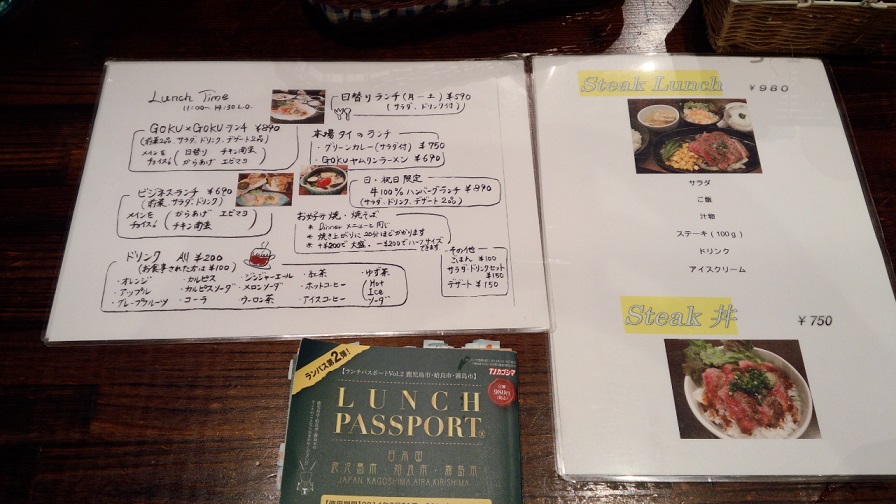 Lunch Time
11:00〜14:30 L.O.
日替りランチ(月ー土) ¥590
(サラダ、ドリンク付)
GOKU×GOKU ランチ ¥890
(前菜2品、サラダ、ドリンク、デザート2品)
メインを
チョイス!
(日替り チキン南蛮
からあげ エビマヨ)
本場タイのランチ
・グリーンカレー(サラダ付) ¥750
・GOKUヤムリンラーメン ¥690
日・祝日限定
牛100%ハンバーグランチ ¥890
(サラダ、ドリンク、デザート2品)
ビジネスランチ ¥690
(前菜、サラダ、ドリンク)
メインを
チョイス!
(からあげ エビマヨ
チキン南蛮)
お好み焼・焼そば
※ Dinner メニューと同じ
※ 焼き上がりに20分ほどかかります
※ +¥200で大盛、−¥200でハーフサイズ
できます
ドリンク All ¥200
(お食事された方は¥100)
・オレンジ
・アップル
・グレープフルーツ
・カルピス
・カルピスソーダ
・コーラ
・ジンジャーエール
・メロンソーダ
・ウーロン茶
・紅茶
・ホットコーヒー
・アイスコーヒー
・ゆず茶
(Hot
Ice
ソーダ
その他
ごはん ¥100
サラダ・ドリンクセット
¥150
デザート ¥150
Steak Lunch ¥980
サラダ
ご飯
汁物
ステーキ(100g)
ドリンク
アイスクリーム
Steak 丼 ¥750
ランパス第2弾!
【ランチパスポートVol.2 鹿児島市・姶良市・霧島市】
TJカゴシマ
定価
980円
(税込)
LUNCH
PASSPORT®
日本国
鹿児島市・姶良市・霧島市
JAPAN KAGOSHIMA.AIRA.KIRISHIMA